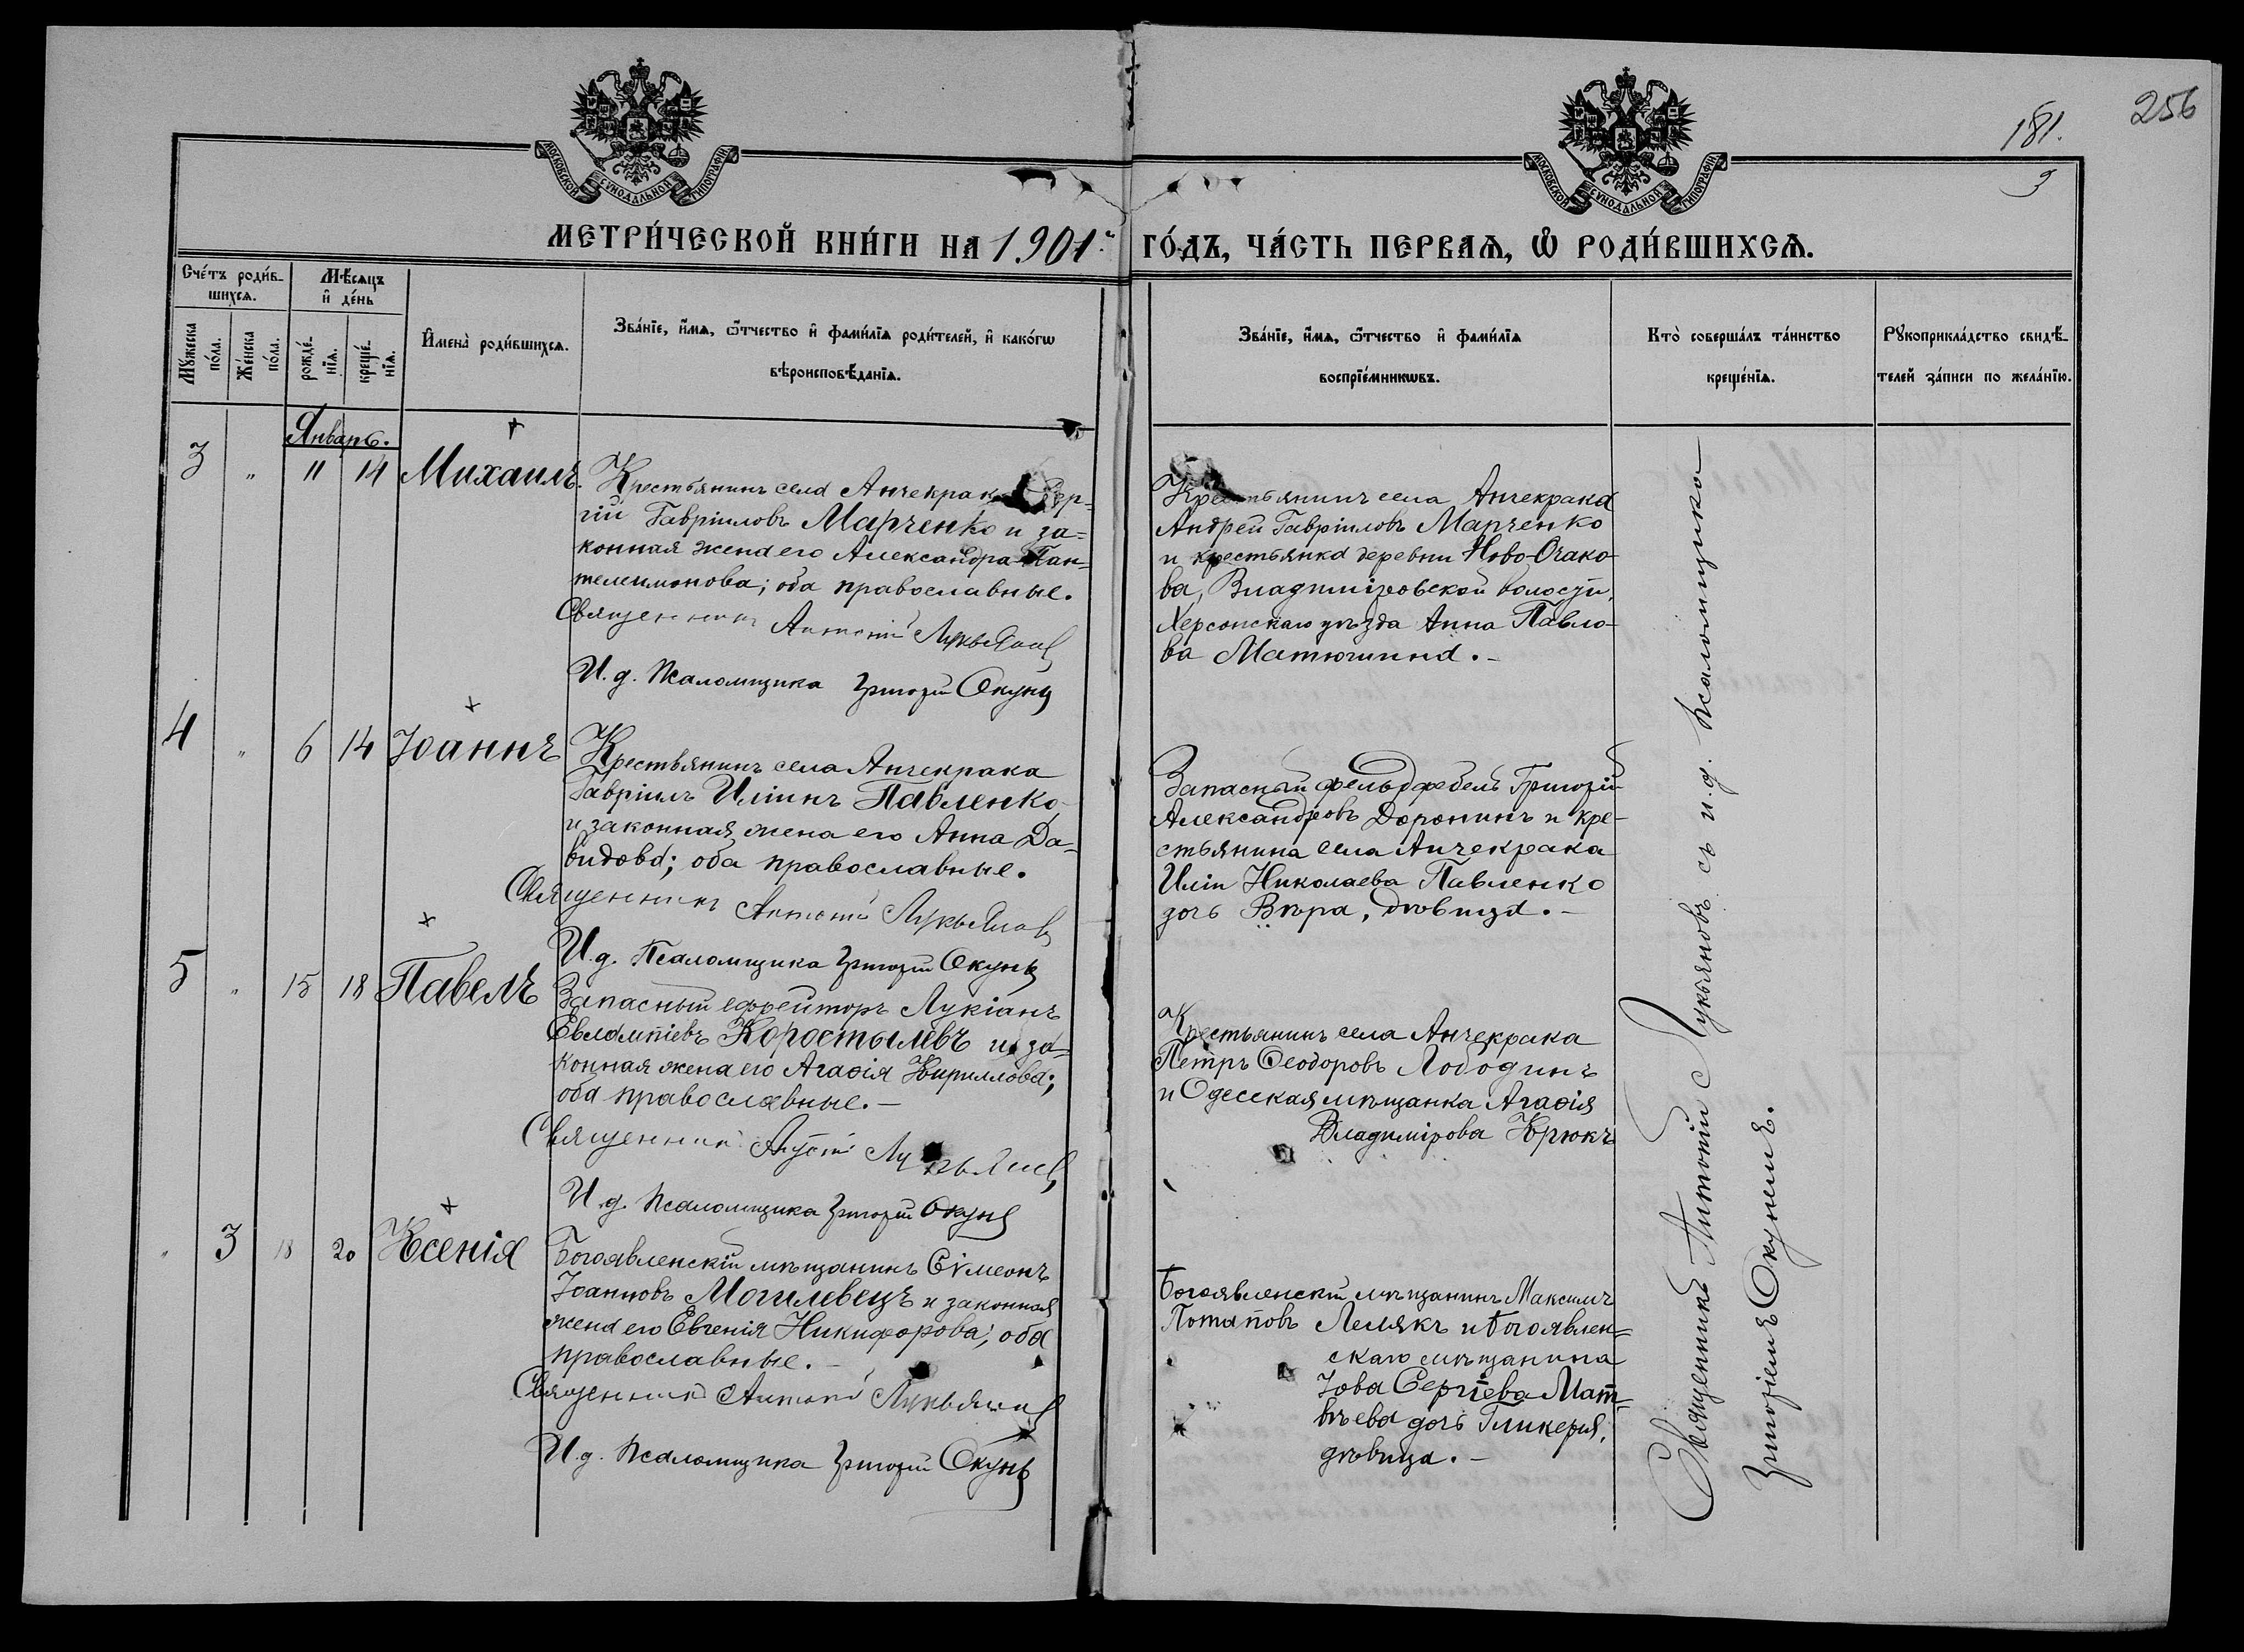 256
181.
3
МОСКОВСКОЙ СѴНОДАЛЬНОЙ ТИПОГРАФІИ
МОСКОВСКОЙ СѴНОДАЛЬНОЙ ТИПОГРАФІИ
МЕТРИ́ЧЕСКОЙ КНИ́ГИ НА 1901й ГО́ДЪ, ЧА́СТЬ ПЕРВАѦ, Ѽ РОДИ́ВШИХСѦ.
Сче́тъ роди́в-
шихсѧ.
Мѣ́сѧцъ
и҆ де́нь
Мꙋ́жеска
по́ла.
Же́нска
по́ла.
рожде́-
нїѧ.
креще́-
нїѧ.
И҆мена̀ роди́вшихсѧ.
Зва́нїе, и҆́мѧ, ѻ҆́тчество и҆ фами́лїѧ роди́телей, и҆ како́гѡ
вѣроисповѣ́данїѧ.
Зва́нїе, и҆́мѧ, ѻ҆́тчество и҆ фами́лїѧ
воспрїе́мникѡвъ.
Кто̀ соверша́лъ та́инство
креще́нїѧ.
Рꙋкоприкла́дство свидѣ́-
телей за́писи по жела́нїю.
Январь.
3 " 11 14 Михаилъ.
Крестьянинъ села Анчекрака Сер-
гій Гавріиловъ Марченко и за-
конная жена его Александра Пан-
телеимонова; оба православные.
Священникъ Антоній Лукьяновъ
И. д. Псаломщика Григорій Окунь
Крестьянинъ села Анчекрака
Андрей Гавріиловъ Марченко
и крестьянка деревни Ново-Очако-
ва, Владиміровской волости,
Херсонскаго уѣзда Анна Павло-
ва Матюшина.-
4 " 6 14 Іоаннъ
Крестьянинъ села Анчекрака
Гавріилъ Иліинъ Павленко
и законная жена его Анна Да-
видова; оба православные.
Священникъ Антоній Лукьяновъ
И. д. Псаломщика Григорій Окунь
Запасный фельдфебель Григорій
Александровъ Доронинъ и кре-
стьянина села Анчекрака
Иліи Николаева Павленко
дочь Вѣра, дѣвица.-
5 " 15 18 Павелъ
Запасный ефрейторъ Лукіанъ
Евлампіевъ Коростылевъ и за-
конная жена его Агаѳія Кириллова;
оба православные.-
Священникъ Антоній Лукьяновъ
И. д. Псаломщика Григорій Окунь
Крестьянинъ села Анчекрака
Петръ Ѳеодоровъ Лободинъ
и Одесская мѣщанка Агаѳія
Владимірова Крюкъ
" 3 18 20 Ксенія
Богоявленскій мѣщанинъ Сѵмеонъ
Іоанновъ Могилевецъ и законная
жена его Евгенія Никифорова; оба
православные.-
Священникъ Антоній Лукьяновъ
И. д. Псаломщика Григорій Окунь
Богоявленскій мѣщанинъ Максимъ
Потаповъ Лемякъ и Богоявлен-
скаго мѣщанина
Іова Сергіева Мат-
вѣева дочь Гликерія,
дѣвица.-
Священникъ Антоній Лукьяновъ съ и. д. псаломщика
Григоріемъ Окунемъ.